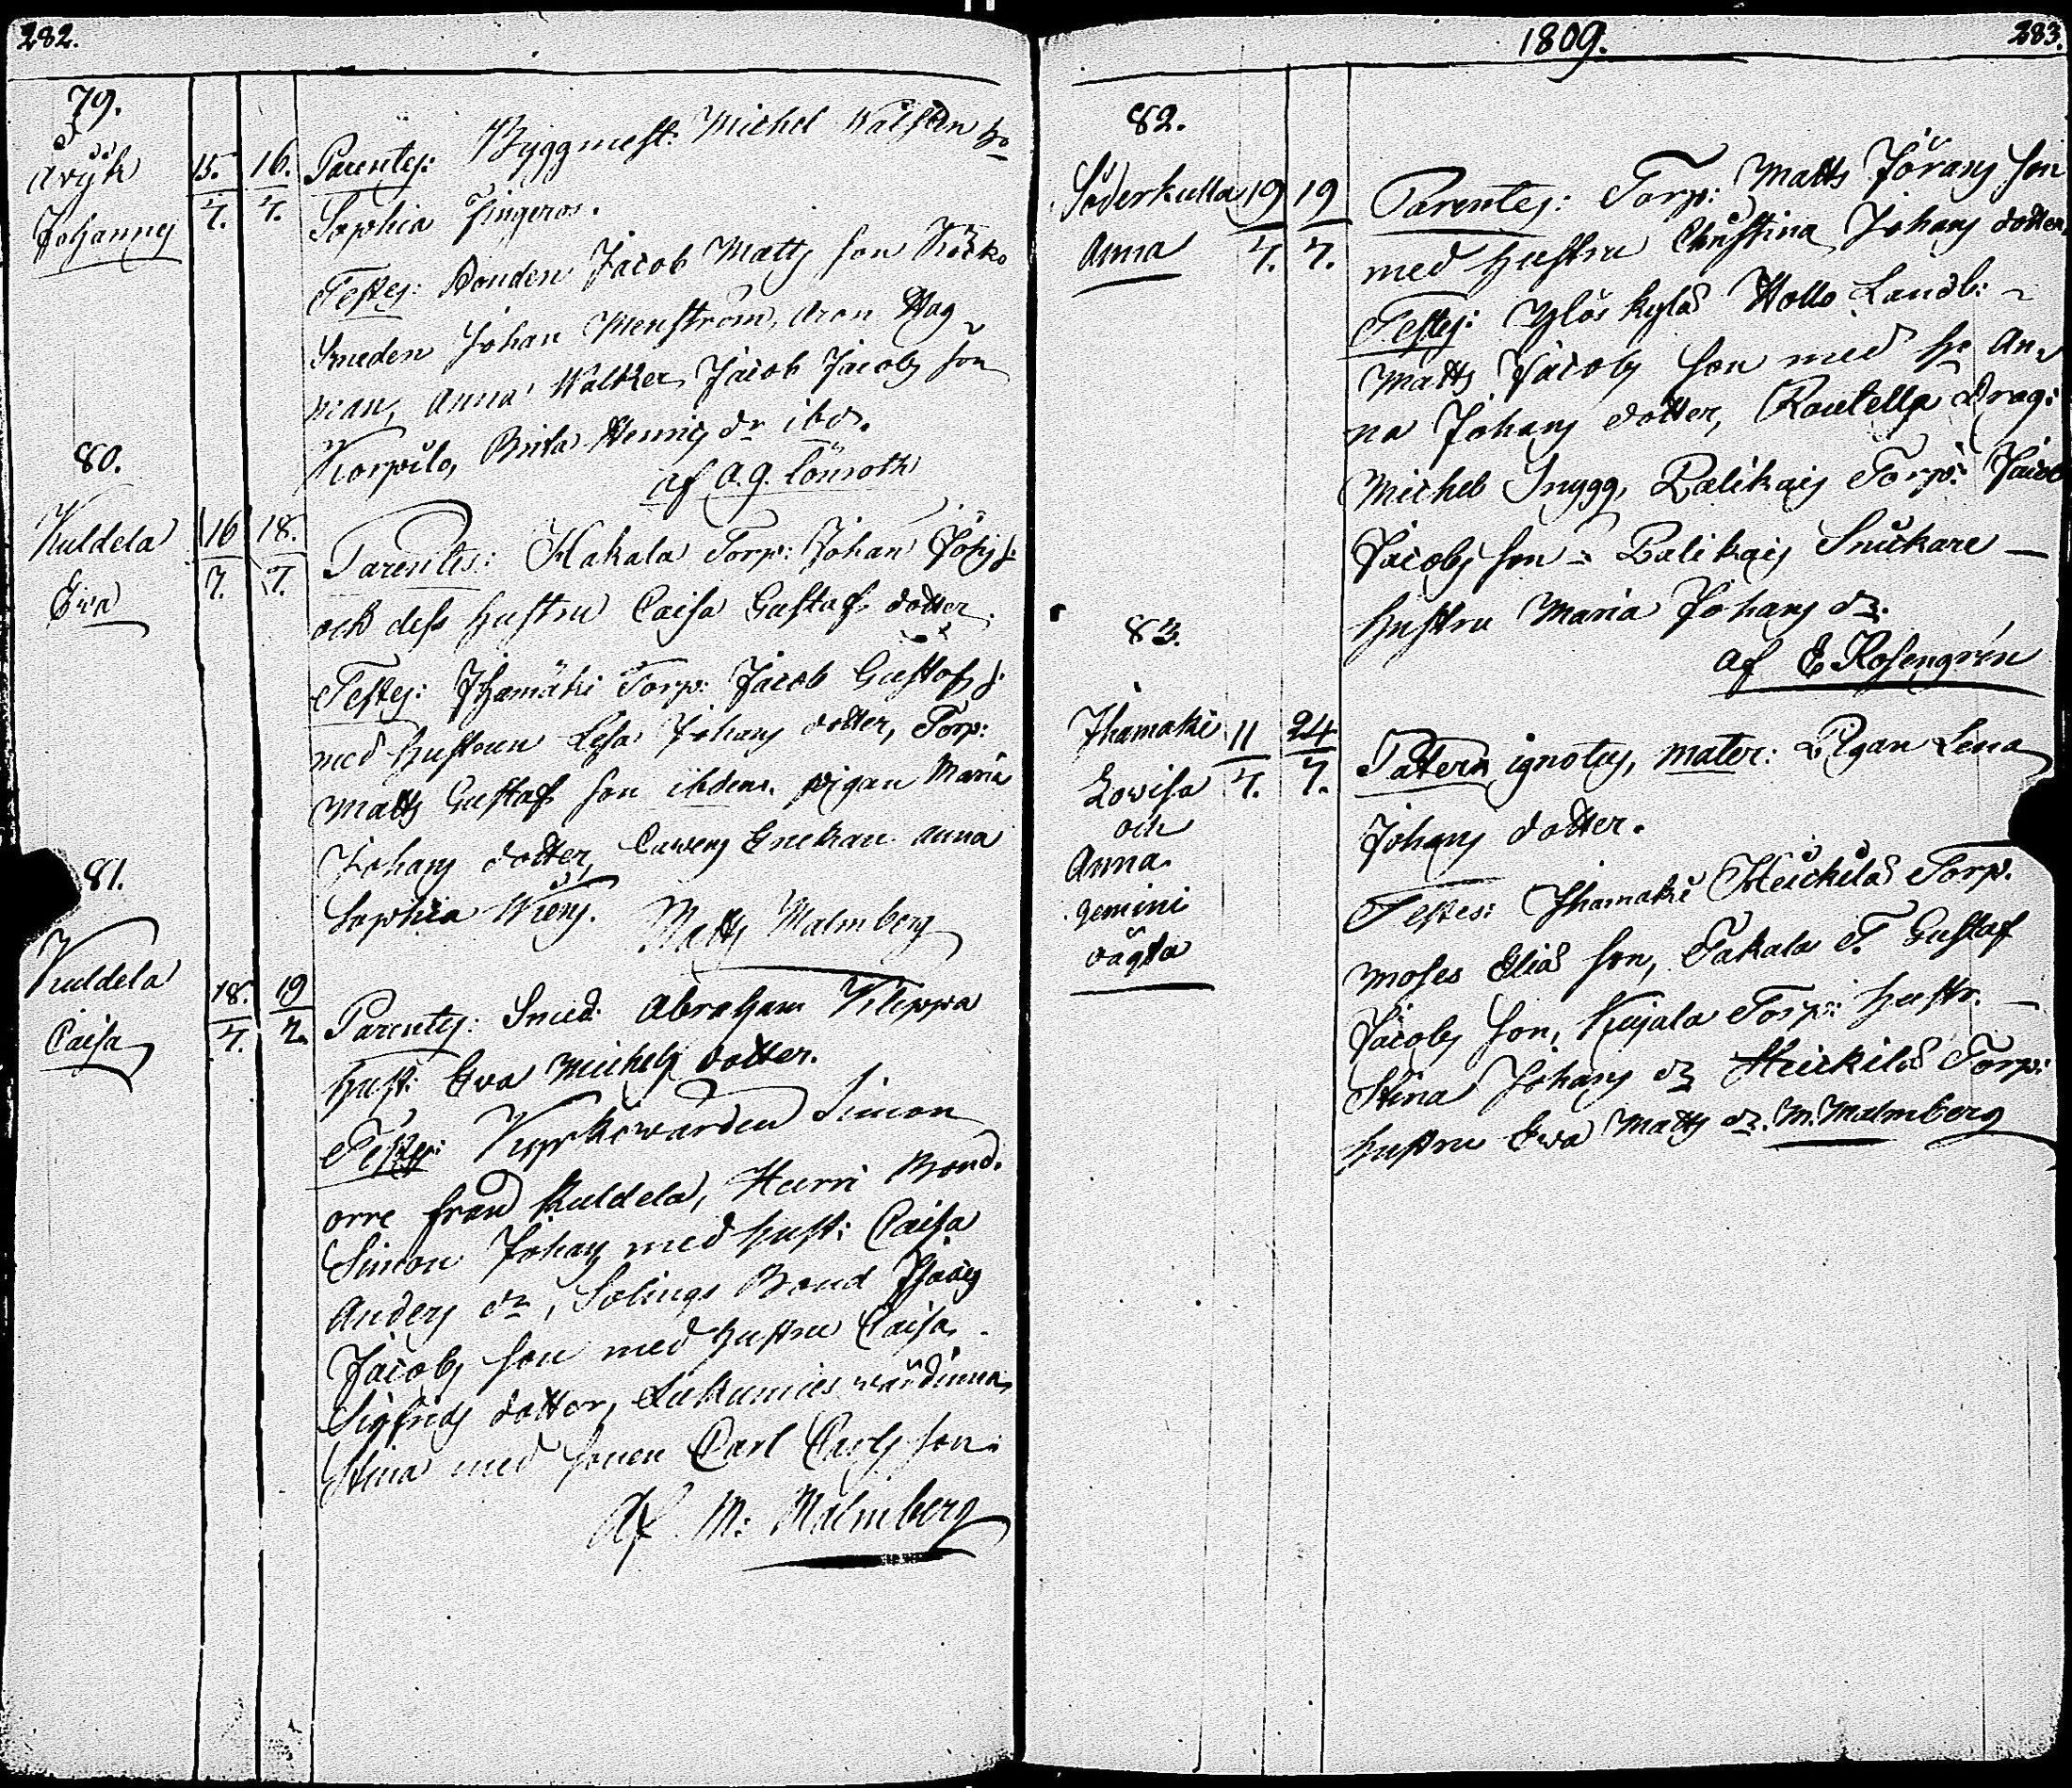 282.
79.
Åvijk
Johannes
15.
7.
16.
7.
Parentes: Byggmest: Michel Walstén h:o
Sophia Zingeros.
Testes: Bonden Jacob Matts son
Smeden Johan Menström, Aron Hag
man, Anna Walker, Jacob Jacobs son
Korpilo, Brita Henrics dr ibd.
af A. G. Lönroth
80.
Kuldela
Eva
16
7.
18.
7.
Parentes: Hakala Torp: Johan Johs s:
och dess hustru Caisa Gustafs dotter.
Testes: Ihamäki Torp: Jacob Gustafs s:
med hustrun Lisa Johans dotter, Torp:
Matts Gustafs son ibdem. pigan Maria
Johans dotter, Enckan Anna
Sophia
Matts Malmberg
81.
Kuldela
Caisa
18.
7.
19
7.
Parentes: Smed: Abraham Filippa
hust: Eva Michels dotter.
Testes: Simon
orre från Kuldela, Heurni Bond.
Simon Johans med hust: Caisa
Anders dr, Solings Bond Isacs
Jacobs son med hustru Caisa
Sigfrids dotter, wärdinna
Stina med sonen Carl Carls son.
Af M: Malmberg
1809.
283.
82.
Söderkulla
Anna
19
7.
19
7.
Parentes: Torp: Matts Jörans son
med hustru Christina Johans dotter,
Testes: Yhöskylä Hollo Landb:
Matts Jacobs son med h:o An-
na Johans dotter, Rautella Drag:
Michel Snygg, Palikais Torp: Jacob
Jacobs son - Palikais Snickare -
hustru Maria Johans dr.
af E Rosengrén
83.
Ihamaki
Lovisa
och
Anna
gemini
oägta
11
7.
24
7.
Pater ignotus, mater: Pigan Lena
Johans dotter.
Testes: Ihamaki Heickilä Torp.
Moses Elias son, Takala T. Gustaf
Jacobs son, Kujala Torp: hustr. -
Stina Johans dr Heickilä Torp:
hustru Ewa Matts dr. M. Malmberg